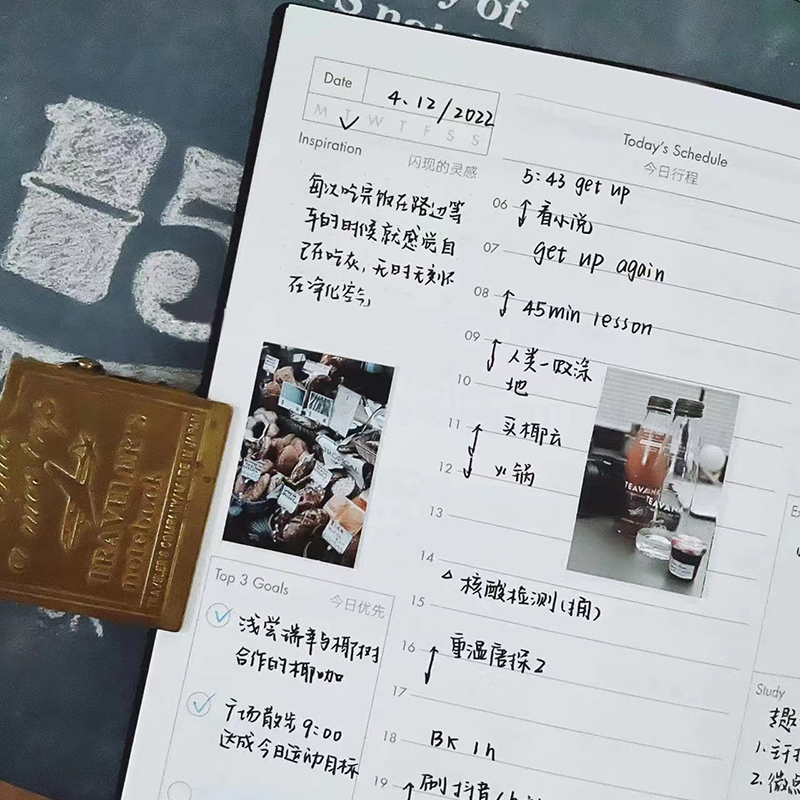 y of
Date
4.12/2022
M T W T F S S
Inspiration
闪现的灵感
每次吃完饭在路边等
车的时候就感觉自
己在吃灰,无时无刻不
在净化空气
Top 3 Goals
今日优先
浅尝瑞幸与椰树
合作的椰咖
广场散步9:00
达成今日运动目标
Today's Schedule
今日行程
5:43 get up
06 看小说
07 get up again
08 45min lesson
09 人类一败涂
地
10
11 买椰云
12 火锅
13
14
核酸检测(捅)
15
16 重温唐探2
17
18 BK 1h
19 刷抖音/
TEAVANA
TEAVANA
Study
1.
2.微点
TRAVELER'S
notebook
TRAVELER'S COMPANY MADE IN JAPAN
5